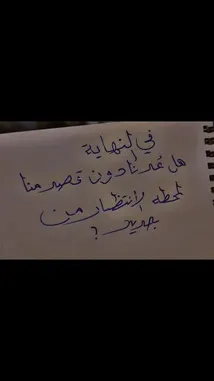 في النهاية
هل عدنا دون قصد منا
لمحطه الأنتظار من
جديد ؟